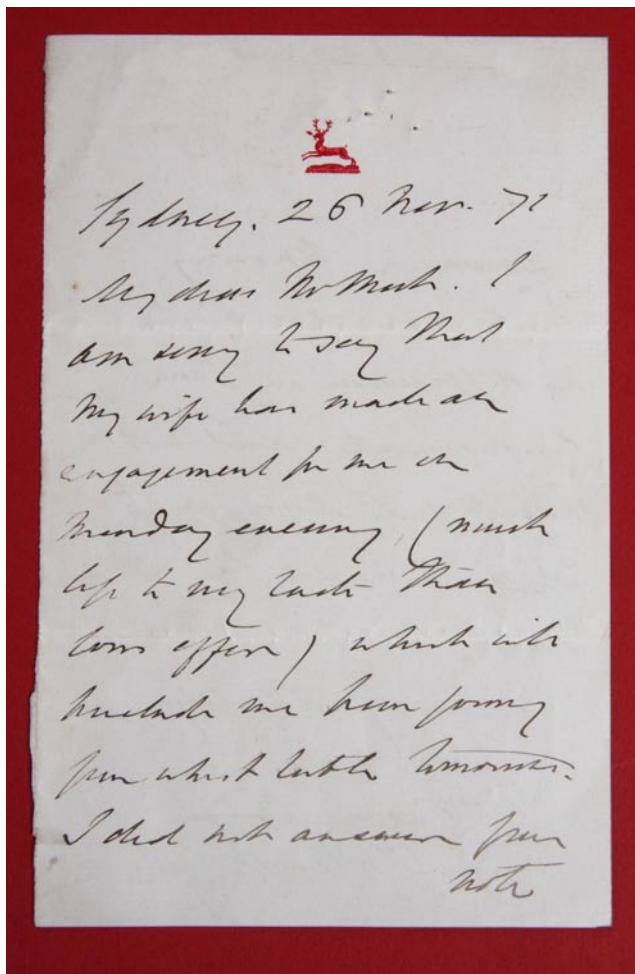 Sydney. 26 Nov. 71
My dear Mr           . I
am sorry to say that
my wife has made an
engagement for me on
Monday evening (much
less to my taste than
             ) which will
preclude me from joining
your whist table tomorrow.
I did not answer your
note